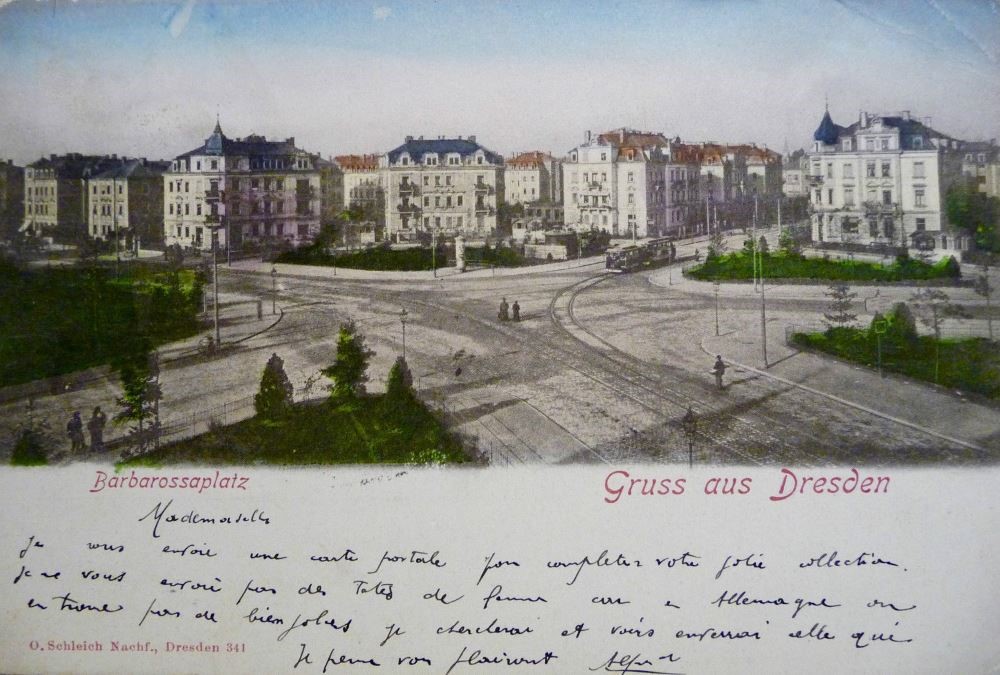 Barbarossaplatz
Gruss aus Dresden
Mademoiselle
Je vous envoie une carte postale pour completer votre jolie collection.
Je ne vous envoie pas des Tetes de femme car en Allemagne on
en trouve pas de bien jolies je chercherai et vous enverrai celle qui
O. Schleich Nachf., Dresden 341
Je pense vous plairont